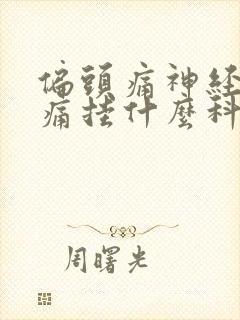 偏頭痛神経
痛挂什麼科
周曙光